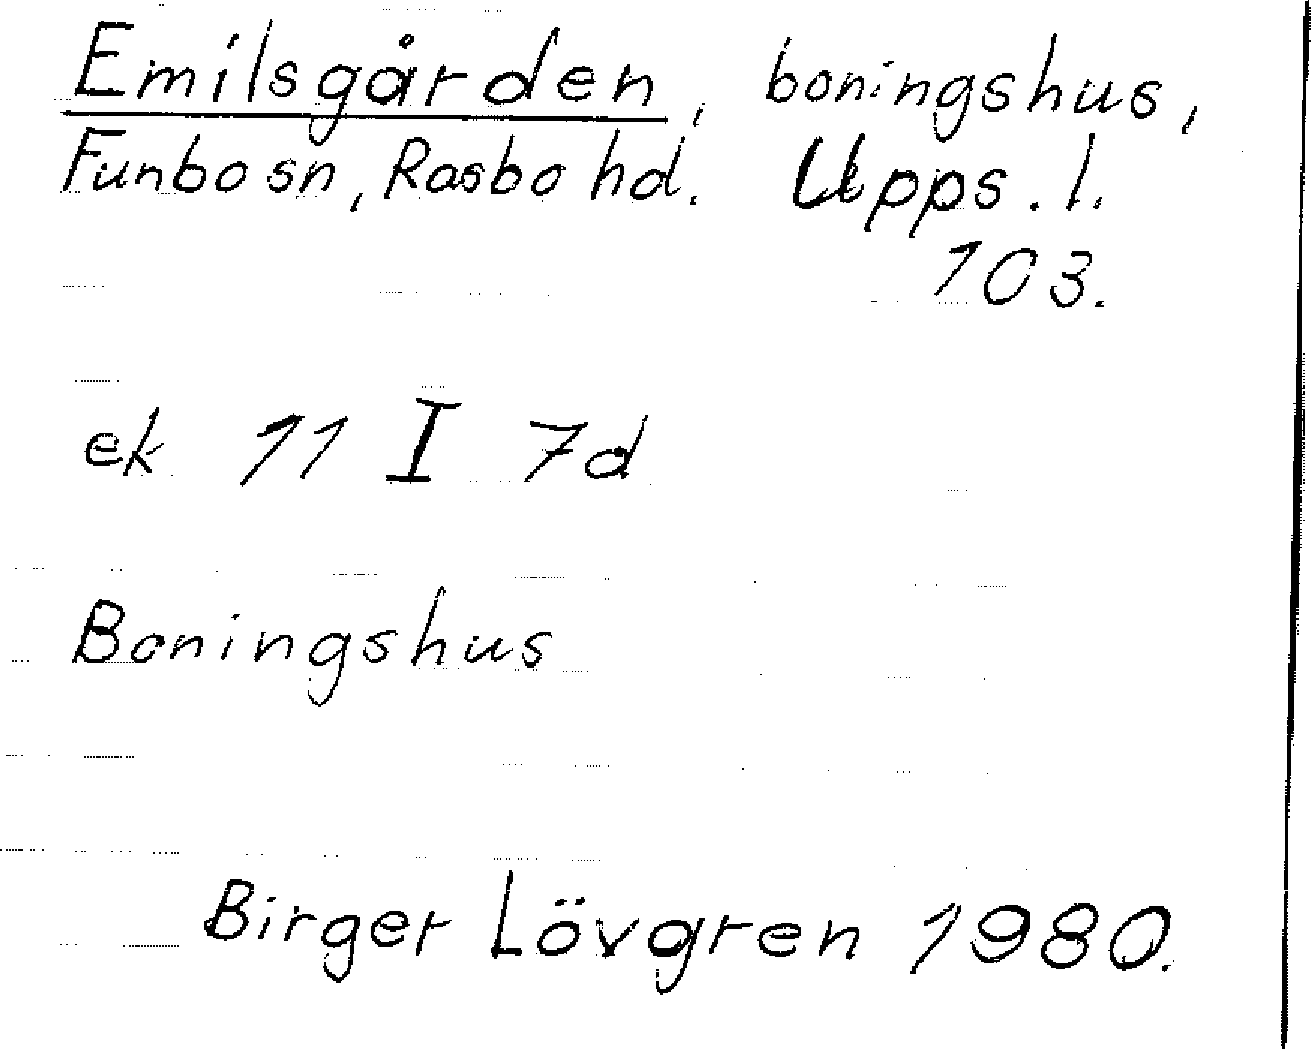 Emilsgården, boningshus,
Funbo sn, Rasbo hd. Upps. l.
103.
ek 11 I 7d
Boningshus
Birger Lövgren 1980.